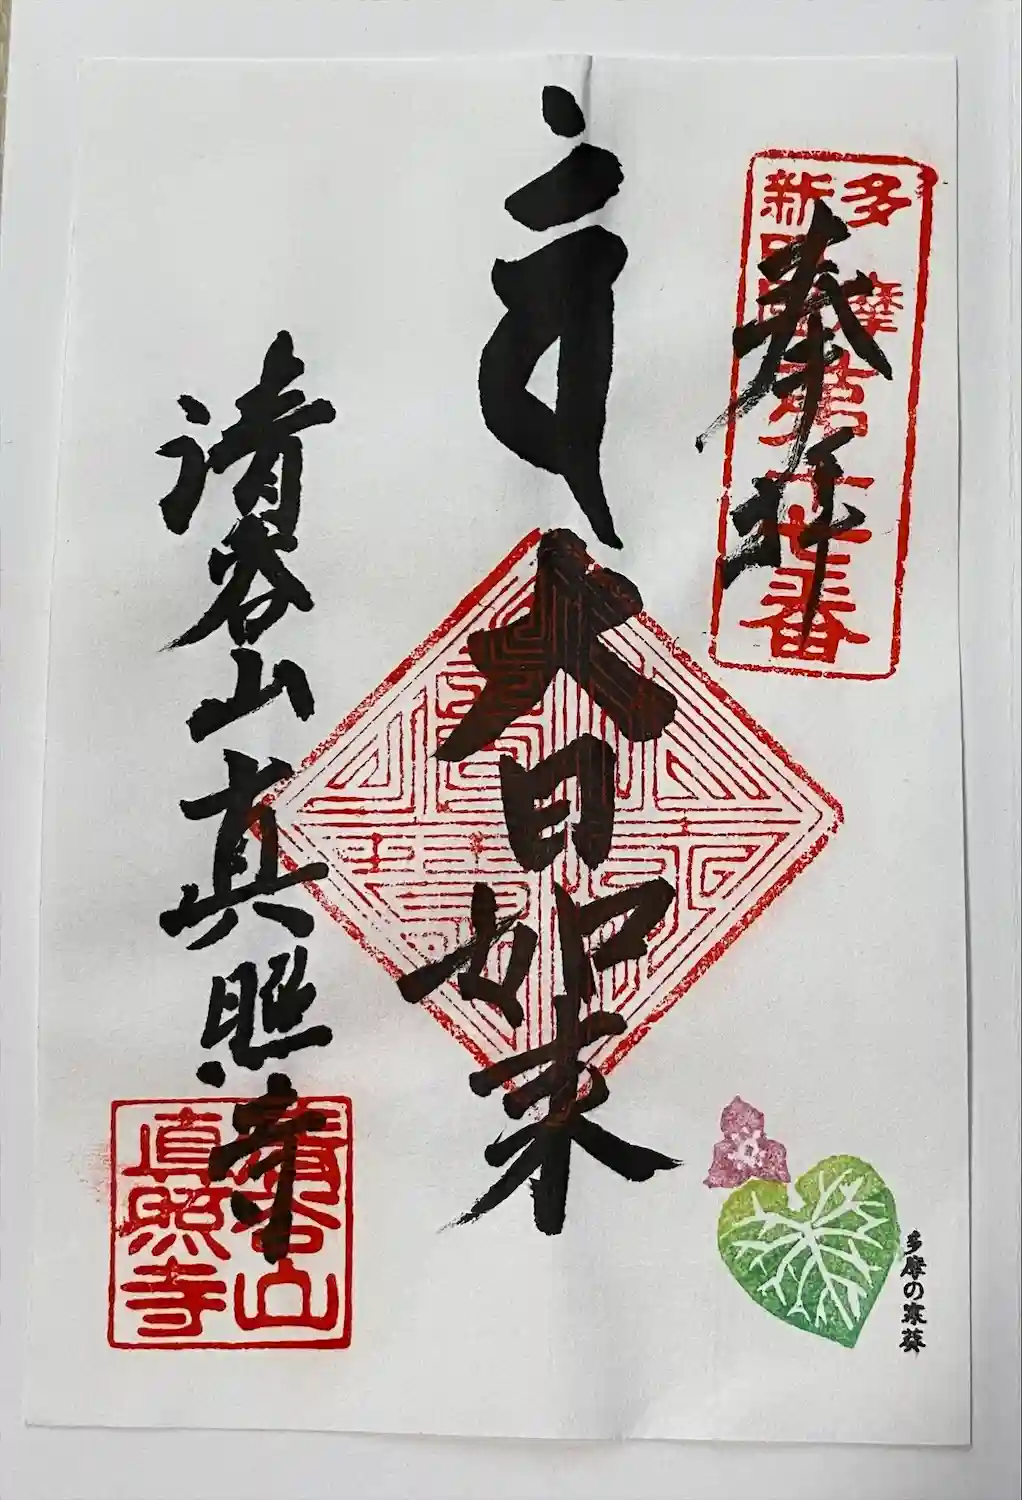 奉拝
多摩
新四国
大日如来
清谷山真照寺
清谷山
真照寺
多摩の寒葵